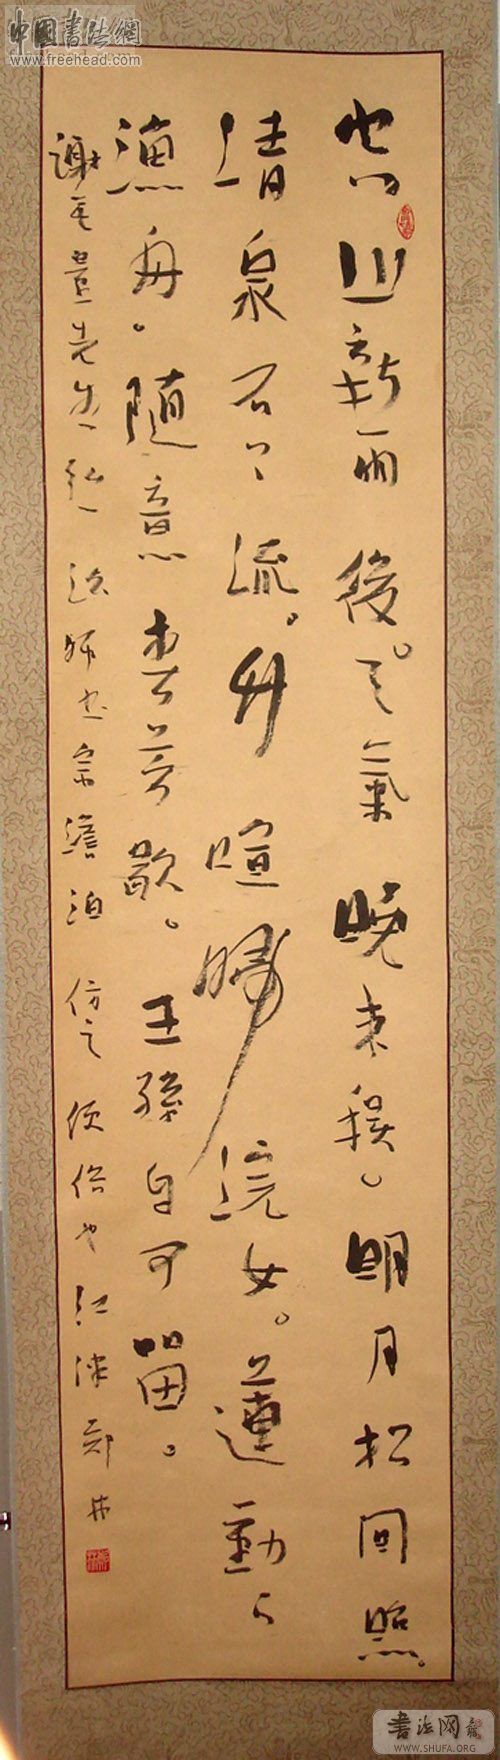 中國書法網
www.freehead.com
空山新雨後。天氣晚来秋。明月松间照。
清泉石上流。竹喧歸浣女。蓮動下
漁舟。隨意春芳歇。王孫自可留。
謝无量先生弘一法師书宗澹泊仿之
书法网
WWW.SHUFA.ORG